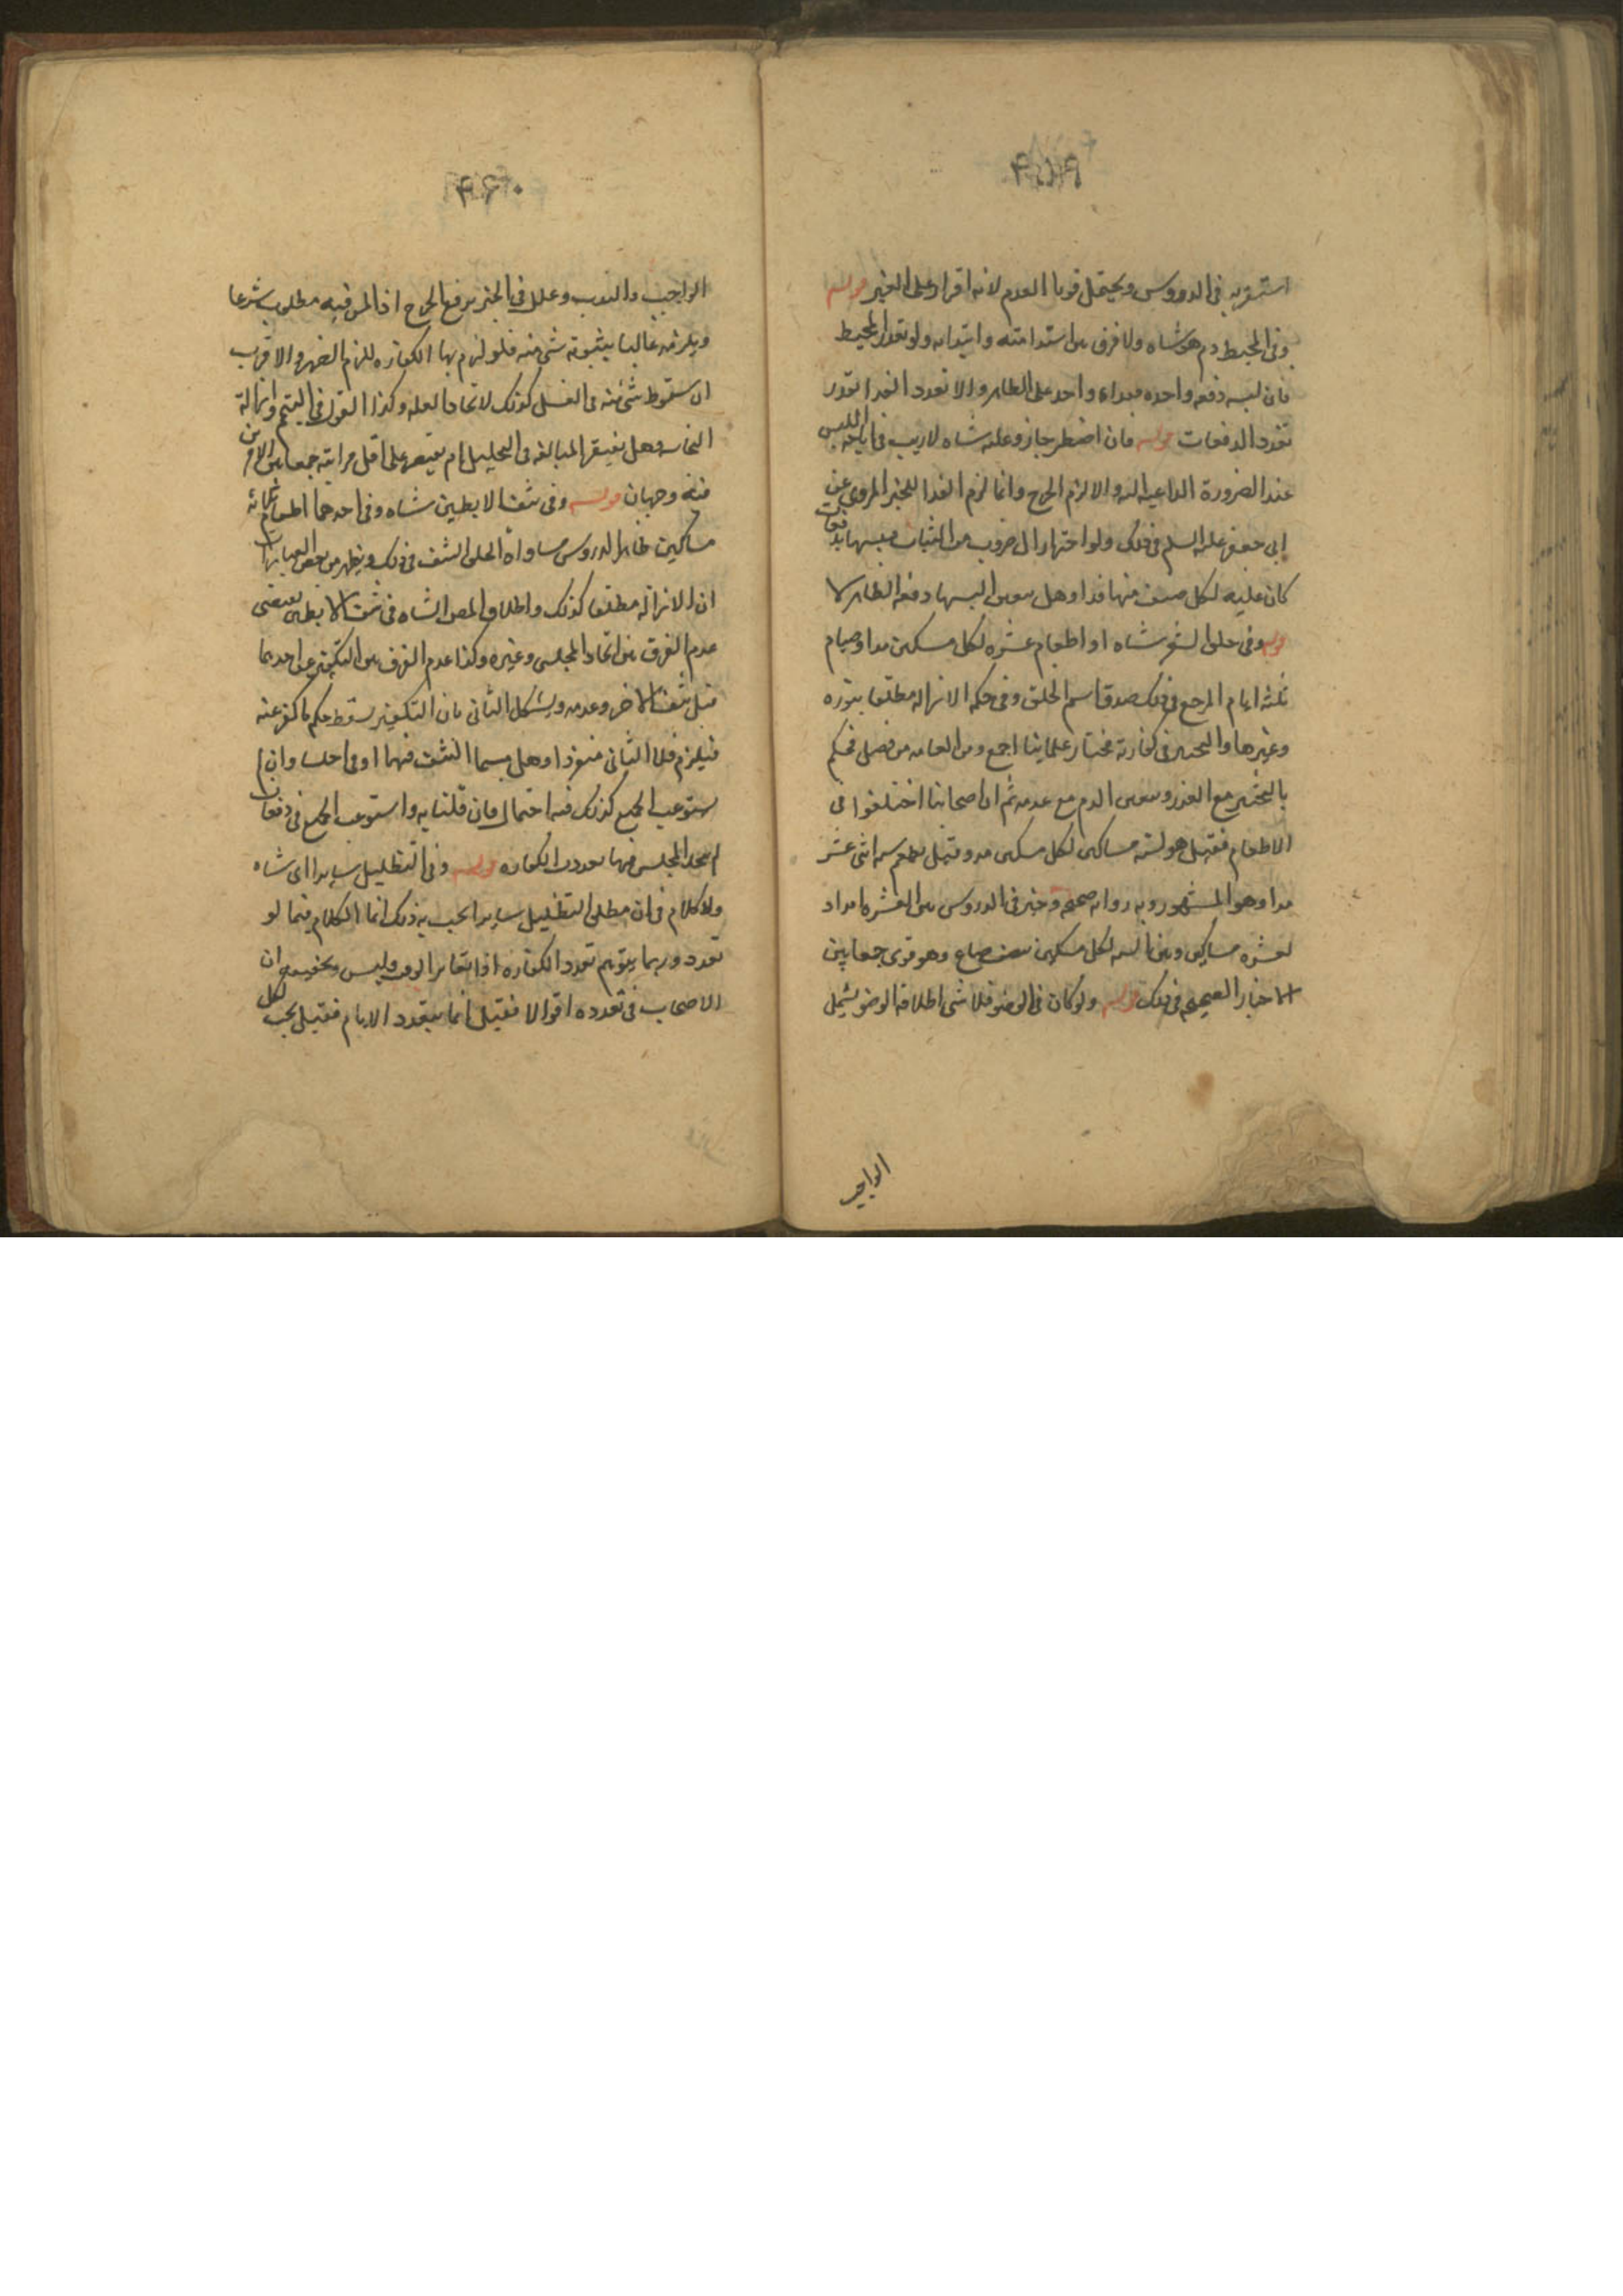 ۴۵۹
استقربه في الدروس ويحتمل قويا العدم لانه اقرار على الغير قوله
وفي المخيط دم هو شاه ولا فرق بين استدامته وابتدائه ولو تعدد المخيط
فان لبسه دفعه واحده ففداء واحد على الظاهر والا تعدد الفدا بتعدد
تعدد الدفعات قوله فان اضطر جاز وعليه شاه لا ريب في اباحة اللبس
عند الضرورة الداعيه اليه والا لزم الحرج وانما لزم الفدا للخبر المروى عن
ابى جعفر عليه السلم في ذلك ولو احتاج الى ضروب من الثياب فلبسها بدفعات
كان عليه لكل صنف منها فدا وهل يتعين البسها دفعه الظاهر لا
قوله وفي حلق الشعر شاه او اطعام عشره لكل مسكين مد او صيام
ثلثه ايام المرجع في ذلك صدق اسم الحلق وفي حكمه الازاله مطلقا بنوره
وغيرها والتخيير في كفارته مختار علمائنا اجمع ومن العامه من فصل فحكم
بالتخيير مع العذر وتعين الدم مع عدمه ثم ان اصحابنا اختلفوا في
الاطعام فقيل هو لسته مساكين لكل مسكين مد وقيل يطعم سته اثنى عشر
مدا وهو المشهور وبه روايه صحيحه وخير في الدروس بين العشره امداد
لعشره مساكين وبين السته لكل مسكين نصف صاع وهو قوى جمعا بين
الاخبار الصحيحه في ذلك قوله ولو كان في الوضوء فلا شى اطلاقه الوضوء يشمل
الواجب
۴۶۰
الواجب والندب وعلل في الخبر برفع الحرج اذ المس فيه مطلوب شرعا
ويلزمه غالبا شى منه فلو لزم بها الكفاره للزم الضرر والاقرب
ان سقوط شئ منه في الغسل كذلك لاتحاد العله وكذا القول في التيمم وازالة
النجاسه وهل يغتفر المبالغه في التخليل ام يقتصر على اقل مراتبه جمعا بين الامرين
فيه وجهان قوله وفي نتف الابطين شاه وفي احدهما اطعام ثلاثه
مساكين ظاهر الدروس مساواة الحلق النتف في ذلك ويظهر من بعض العبارات
ان الازاله مطلقا كذلك واطلاق المصن الشاه في نتف الابطين يقتضى
عدم الفرق بين اتحاد المجلس وغيره وكذا عدم الفرق بين التكفير عن احدهما
قبل نتف الاخر وعدمه ويشكل الثانى بان التكفير يسقط حكم ما كفر عنه
فيلزم الثانى منفردا وهل مسما النتف فيهما او في احدهما وان لم
يستوعب الجميع كذلك فيه احتمال فان قلنا به واستوعب الجميع في دفعات
لم يتحد المجلس فيها تعددت الكفاره قوله وفي التظليل سايرا اى شاه
ولا كلام في ان مطلق التظليل سايرا يجب به ذلك انما الكلام فيما لو
تعدد وربما يتوهم تعدد الكفاره اذا تغاير الوقت وليس وتحقيقه ان
الاصحاب في تعدده اقوالا فقيل انما يتعدد الايام فقيل يجب لكل